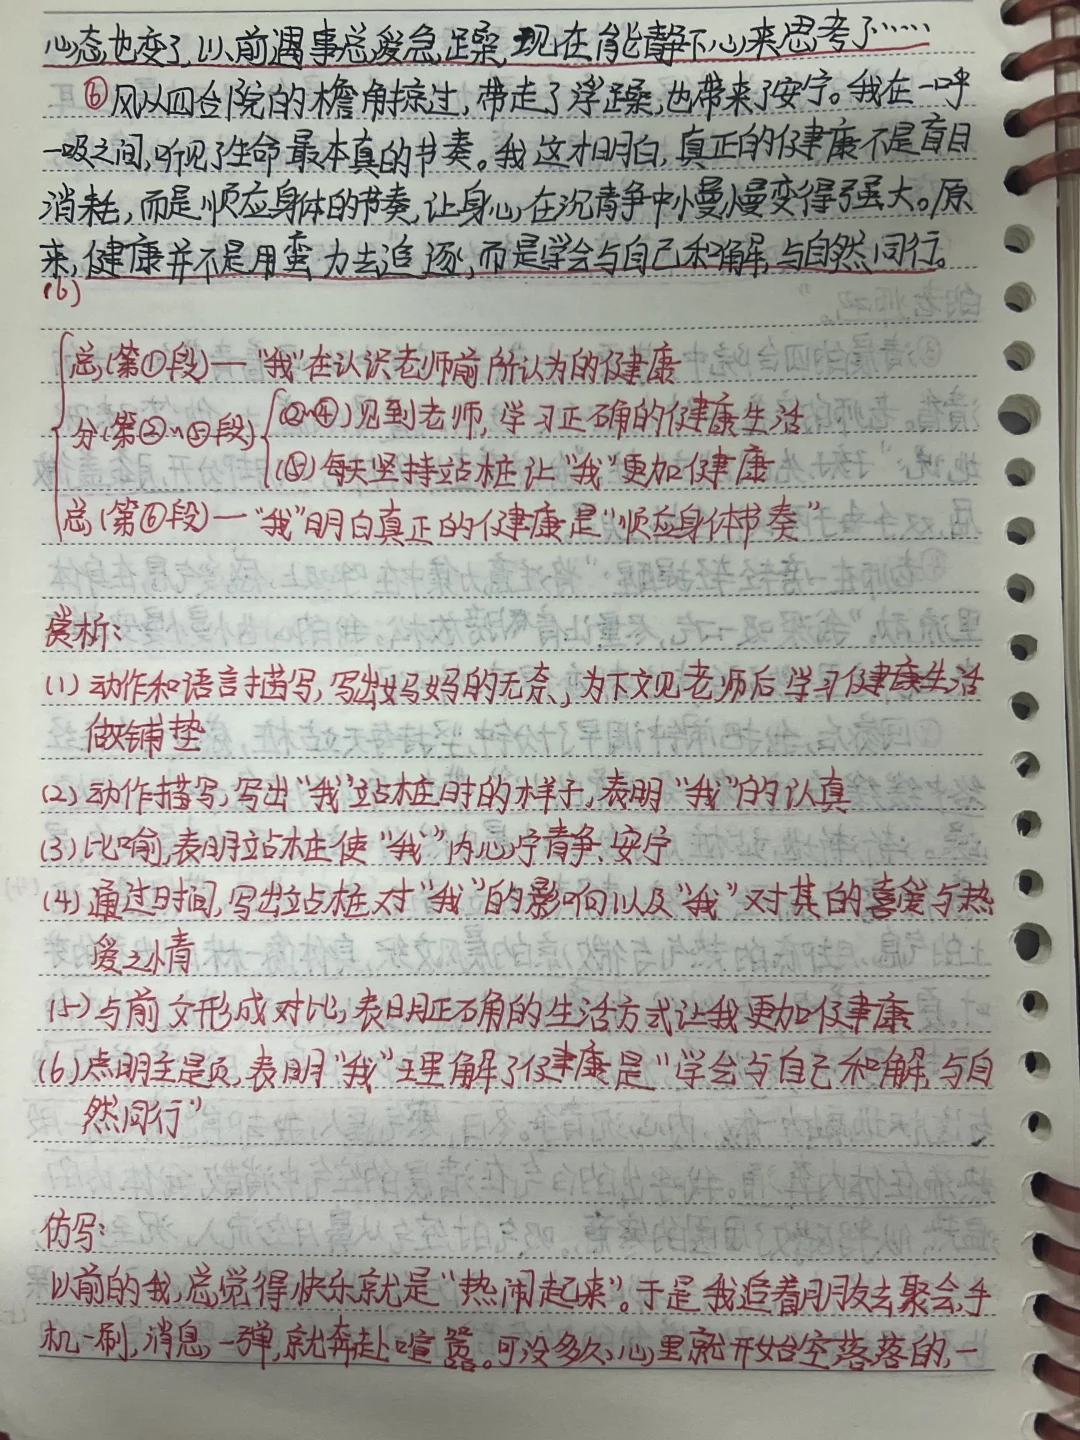 心态也变了,以前遇事总爱急躁,现在能静下心来思考了……
⑥风从四合院的檐角掠过,带走了浮躁,也带来了安宁。我在一呼
一吸之间,听见了生命最本真的节奏。我这才明白,真正的健康不是盲目
消耗,而是顺应身体的节奏,让身心在沉静中慢慢变得强大。原
来,健康并不是用蛮力去追逐,而是学会与自己和解,与自然同行。
(6)
总(第①段)—“我”在认识老师前所认为的健康
分(第②~⑤段)
(②~④)见到老师,学习正确的健康生活
(⑤)每天坚持站桩让“我”更加健康
总(第⑥段)—“我”明白真正的健康是“顺应身体节奏”
赏析:
(1)动作和语言描写,写出妈妈的无奈,为下文见老师后学习健康生活
做铺垫
(2)动作描写,写出“我”站桩时的样子,表明“我”的认真
(3)比喻,表明站桩使“我”内心宁静、安宁
(4)通过时间,写出站桩对“我”的影响以及“我”对其的喜爱与热
爱之情
(5)与前文形成对比,表明正确的生活方式让我更加健康
(6)点明主题,表明“我”理解了健康是“学会与自己和解,与自
然同行”
仿写:
以前的我,总觉得快乐就是“热闹起来”。于是我追着朋友去聚会,手
机一刷,消息一弹,就奔赴喧嚣。可没多久,心里就开始空落落的,一